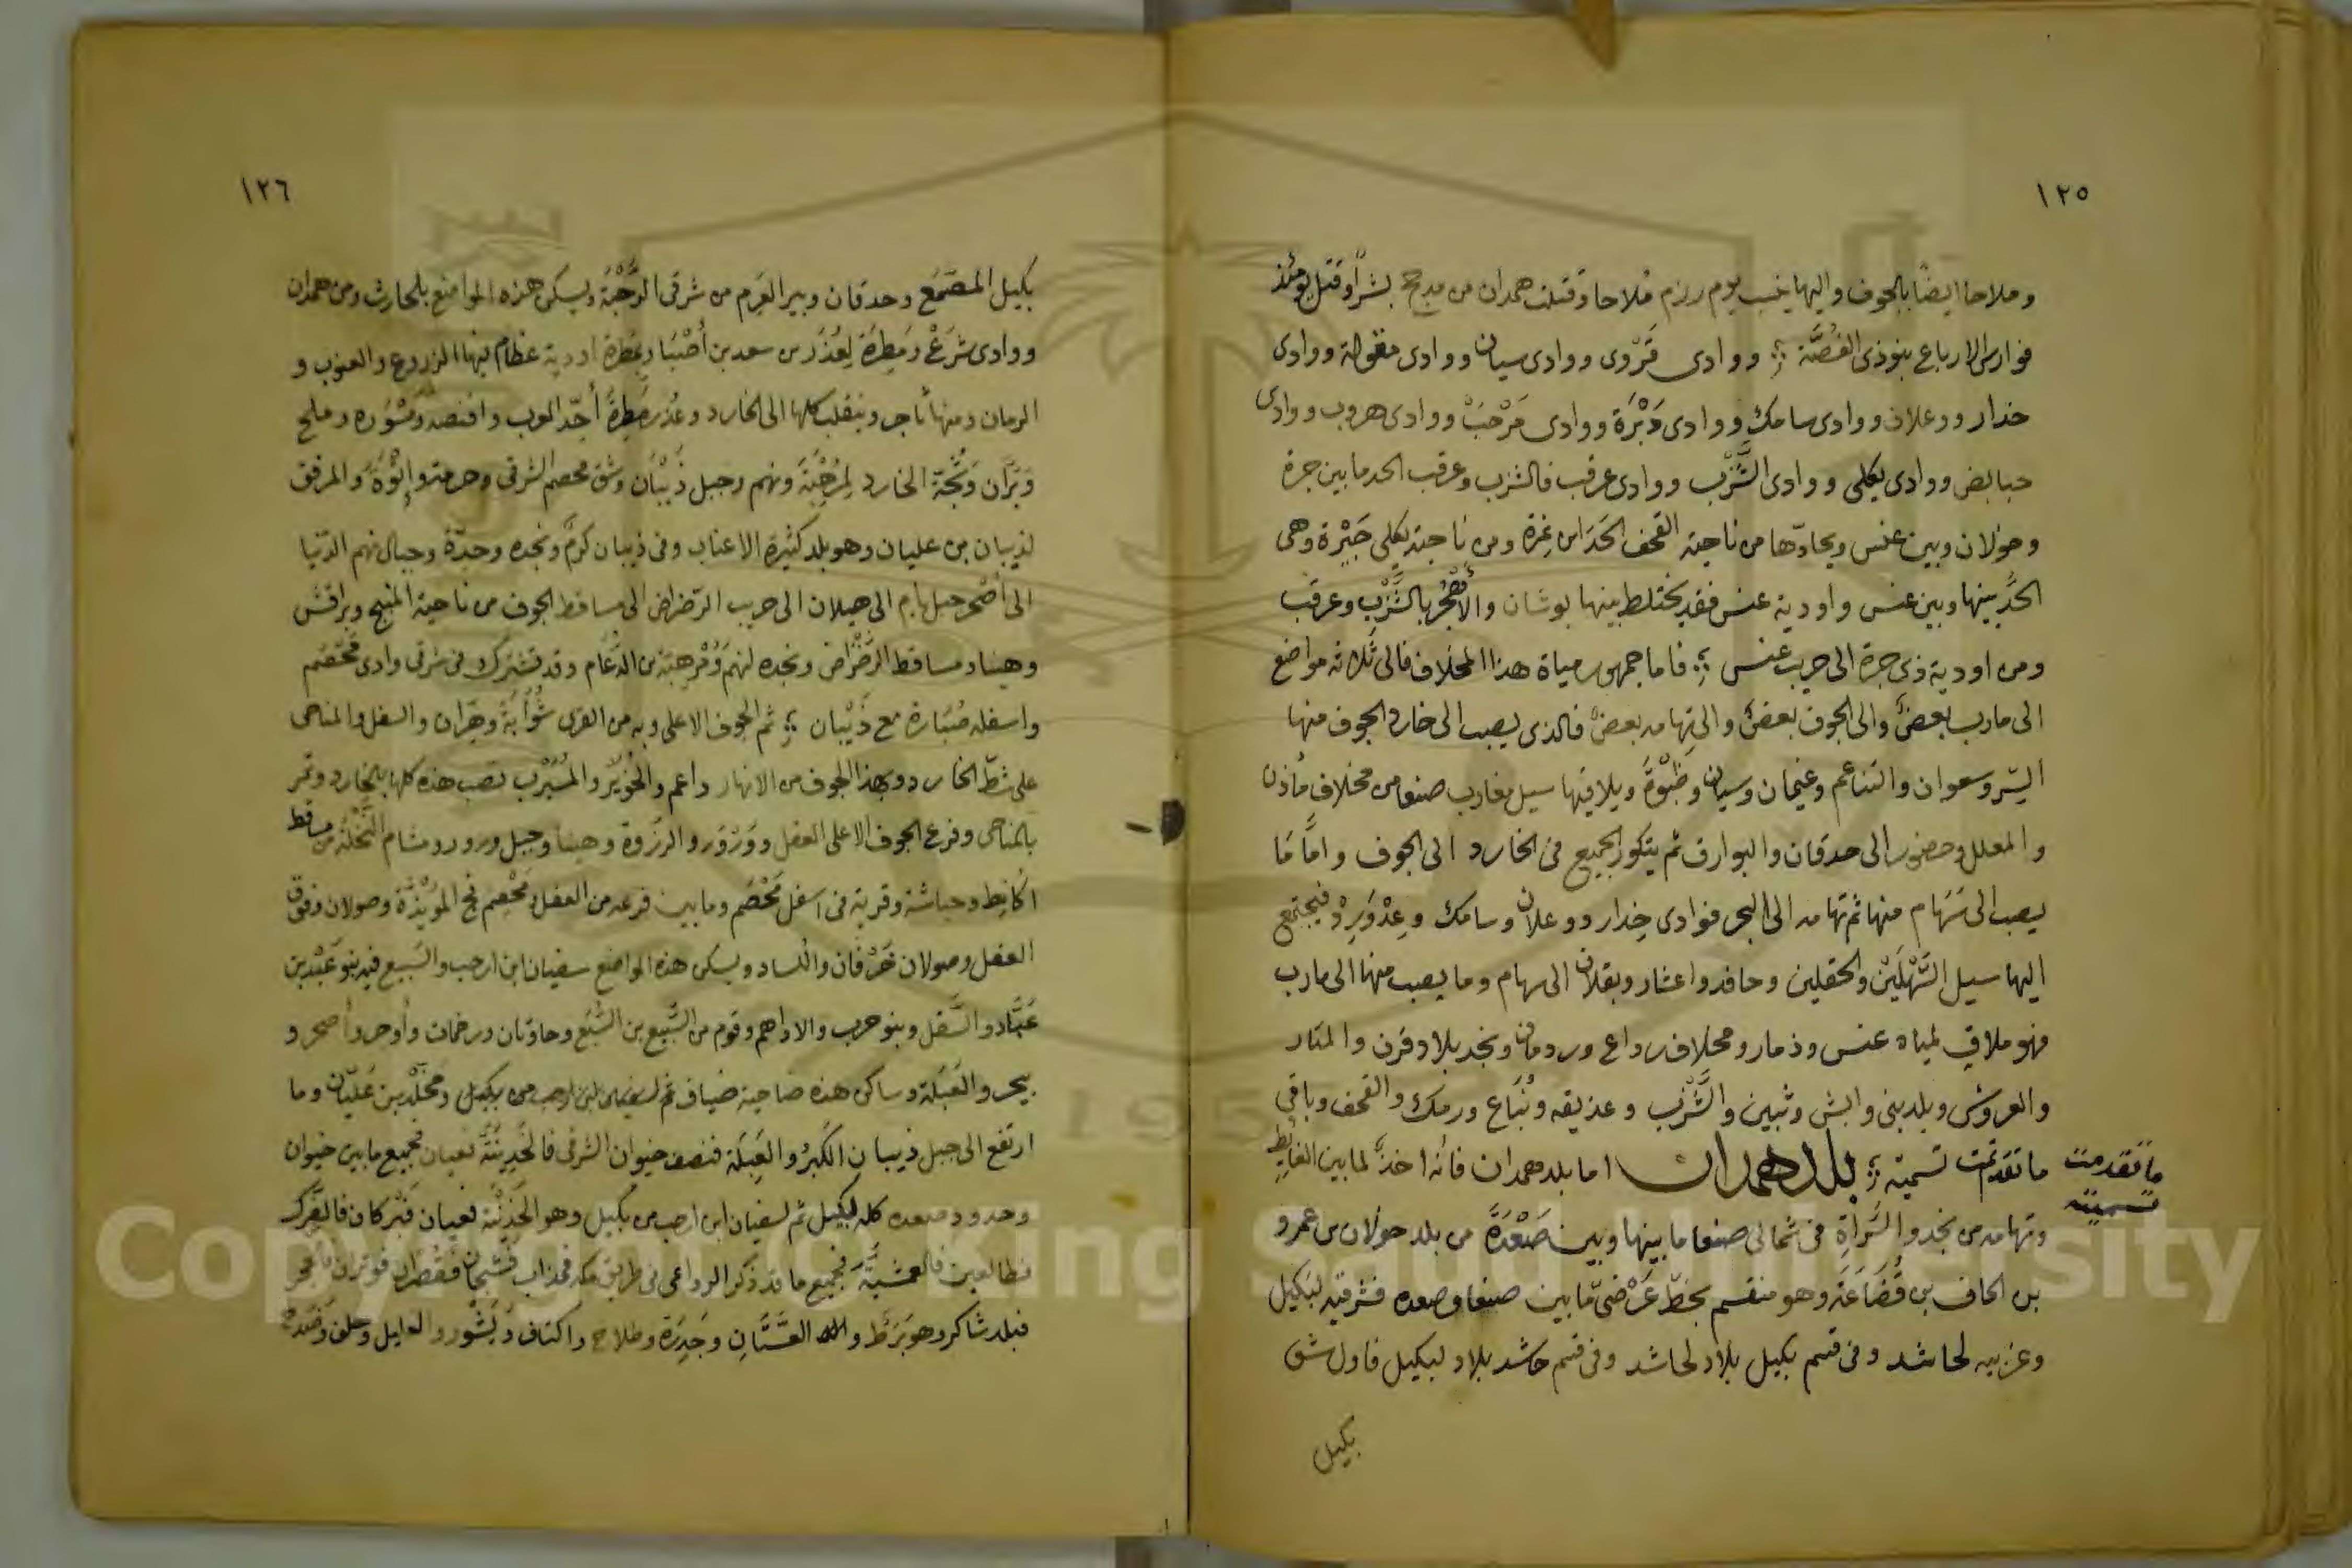 ١٢٥
وملاحا ايضًا بالجوف واليها ينسب يوم رزم ملاحا وقتلت همدان من مذحج بشرًا وقتل يومئذ
فوارس الارباع بنو ذى الغُصَّة ؛ ووادى قَرْوى ووادى سيان ووادى مقولة ووادى
خدار ووعلان ووادى سامك ووادى دَبْرَة ووادى مَرْحَبْ ووادى هروب ووادى
حبابض ووادى يكلى ووادى الشَّزَب ووادى عرقب فالشزب وعرقب الحد ما بين جرة
وخولان وبين عنس ويحادّها من ناحية القحف الحَدَا بن نمرة ومن ناحية يكلى جَبْرة وهى
الحدّ بينها وبين عنس واودية عنس فقد يختلط بينها بوشان والأهْجُر بالشَّزَب وعرقب
ومن اودية ذى جرة الى حريب عنس ؛ فاما جمهور مياة هذا المخلاف فالى ثلاثه مواضع
الى مارب بعضٌ والى الجوف بعضٌ والى تهامه بعضٌ فالذى يصب الى خارد الجوف منها
السّر وسعوان والتناعم وغيمان وسيان وظَبْوَة ويلاقيها سيل مغارب صنعا من مخلاف مأذن
والمعلل وحضور الى حدقان والبوارق ثم يتكور الجميع فى الخارد الى الجوف وامّا مَا
يصب الى سَهَام منها ثم تهامه الى البحر فوادى خِدار ووعلان وسامك وعِدْوَرِدْ فيجتمع
اليها سيل السَّهْلَيْن والحقلين وحافد واعشار وبقلان الى سهام وما يصب منها الى مارب
فهو ملاقي لمياه عنس وذمار ومخلاف رداع وردمان ونجد بلاد قرن والمنار
والعروش وبلد بنى وابش وثبين والشَّزَب وعذيقه ونُبَاع ورمك والقحف وباقي
ما تقدمت تسميته ؛ بلد همدان اما بلد همدان فانه اخذٌ لما بين الغايط
ما تقدمت
تسميته
وتهامه من نجد والسَّراةِ فى شمالى صنعا ما بينها وبين صَعْدَة من بلد خولان بن عمرو
بن الحاف بن قُضَاعَة وهو منقسم بخطّ عَرْضىّ ما بين صنعا وصعده فشرقيه لبكيل
وغربيه لحاشد وفى قسم بكيل بلادٌ لحاشد وفى قسم حاشد بلاد لبكيل فاول شق
بكيل
١٢٦
بكيل المصَمَع وحدقان وبير العَرِم من شرقى الرَّحْبَة ويسكن هذه المواضع بلحارث ومن همدان
ووادى شَرَعْ ومَطِرَة لِعُذَر بن سعد بن أَصْبَا وبمَطِرة اودية عظام فيها الزروع والعنوب و
الرمان ومنها ثاجر وينقلب كلها الى الخارد وعُذر مَطِرَةَ أحدّ العرب وافنصه ومَسْوَره وملح
وبَرَّان وشَجّة الخارد لِمُرهِبَة ونهم وجبل ذَيْبَان وشق محصم الشرقى وحرمته وإثْوَة والمرفق
لذيبان بن عليان وهو بلد كثيرة الاعناب وفى ذيبان كرمٌ ونجده وحدّة وجبال نهم الدّنيا
الى أصْحر جبل يام الى هيلان الى حريب الرّضراض الى مساقط الجوف من ناحية المنبج وبراقش
وهيناد مساقط الرَضْرَاض ونجده لنهم ومُرْهِبَة بن الدُعام وقد تشترك فى شرقى وادى مَحْصَم
واسفله صُبَارة مع ذَيْبَان ؛ ثم الجوف الاعلى وبه من القرى شُوأبَةُ وهِرّان والسفل والمناحى
على شطّ الخارد وبهذا الجوف من الانهار داعم والحُوَيْر والمسْرَب تصب هذه كلها بالخارد وتمر
بالمناحى وفرع الجوف الاعلى العقل ووَرْوَر والرزْوة وهينا وجبل ورور ومشام النَّخْلَة من مساقط
اكانِط وحباشة وقرية فى اسفل مَحْصَم وما بين فرعه من العقل ومَحْصِم فج المَويَّذَة وصولان وفوق
العقل وصولان خَرْفان والكساد ويسكن هذه المواضع سفيان ابن ارحب والسَبيع فيه بنو عَبْد بن
عَبّاد والسَّفل وبنو حرب والاداهم وقوم من السَّبيع بن السَّبُع وحاوتان ورخمات وأوحر وأصحر و
يبحر والعَبَلة وساكن هذه ضاحية ضياف ثم لسفيان ابن ارحب من بكيل ومَخْلد بن عَليّان وما
ارتفع الى جبل ذيبان الكَبِرُ والعَبِلَة فنصف خيوان الشرقى فالحَدِينَّة نعيان فجميع ما بين خيوان
وحدود صعده كله لبكيل ثم لسفيان ابن ارحب من بكيل وهو الجُذَنْيَة نعيان فَبَركان فالفَرَك
فطالعين فالعمشيَّة فجميع ما قد ذكر الرداعى فى طريق مكه
فبلد شاكر وهو بَرَط والعَسَّانِ وجَدِرَة وطلاح واكتاف ونَشُور والعايل وحلف وضَدَح